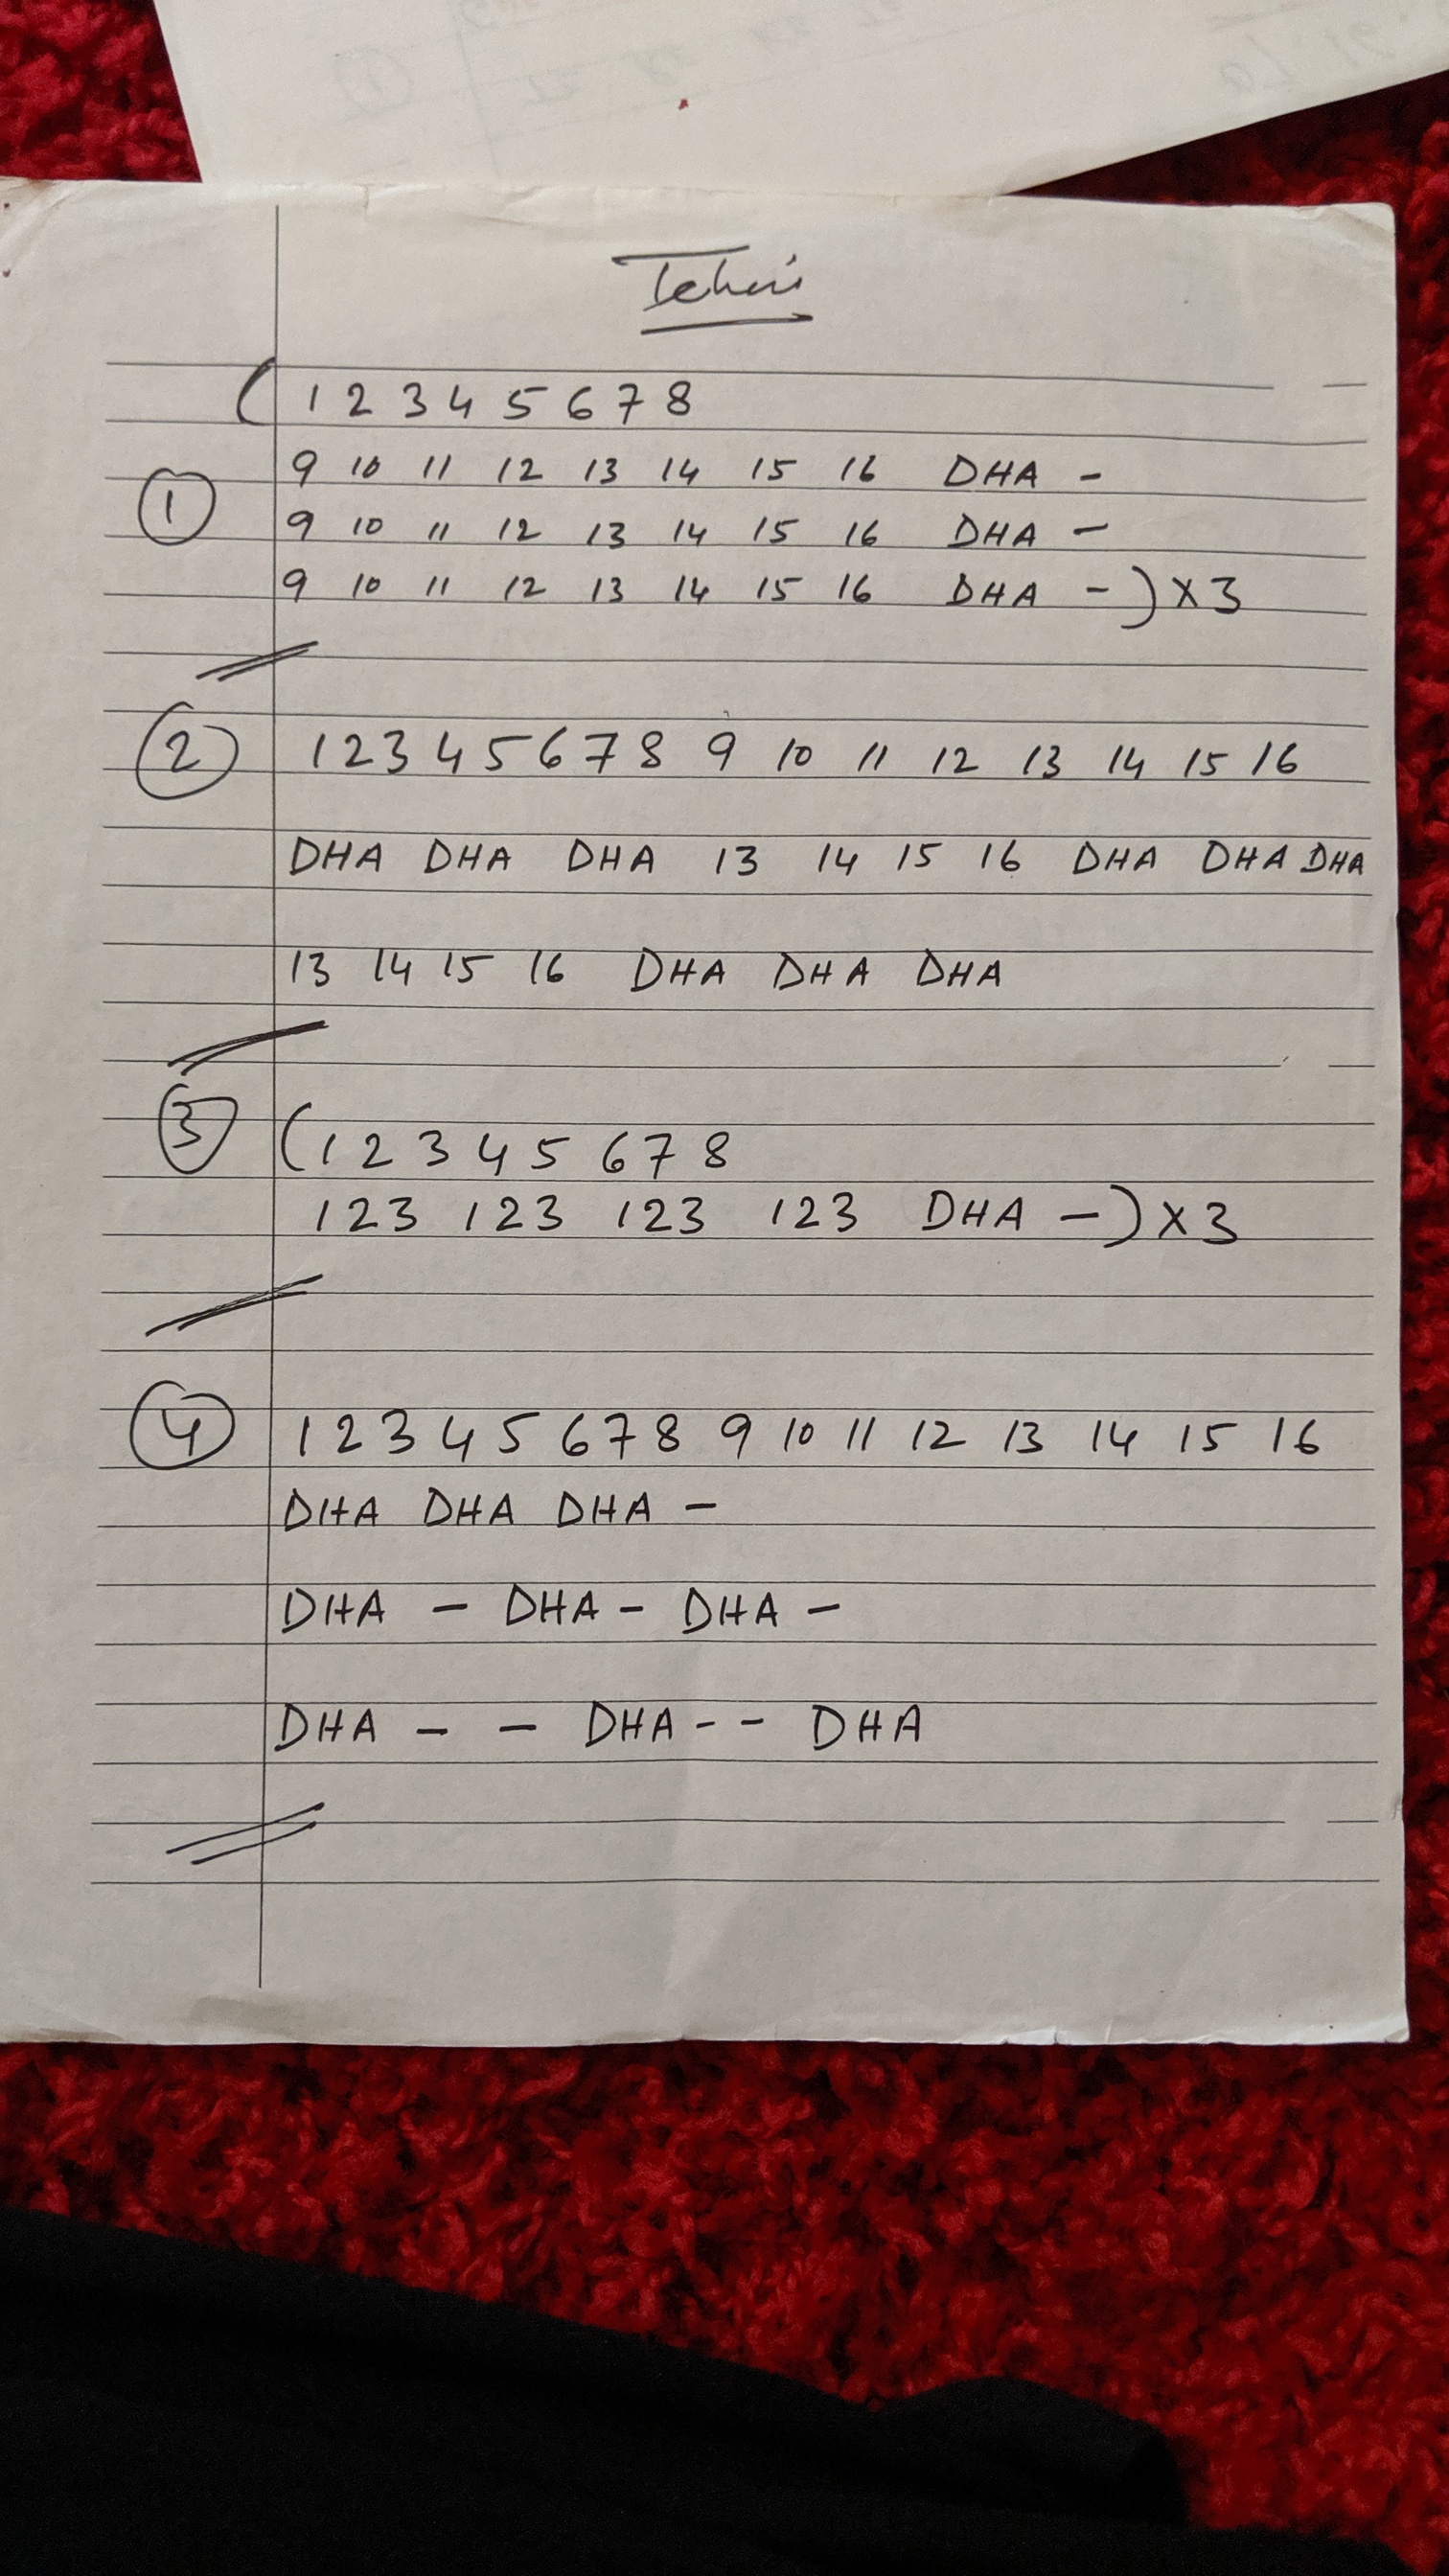 Tehai
( 1 2 3 4 5 6 7 8
① 9 10 11 12 13 14 15 16 DHA -
9 10 11 12 13 14 15 16 DHA -
9 10 11 12 13 14 15 16 DHA - ) X 3
② 1 2 3 4 5 6 7 8 9 10 11 12 13 14 15 16
DHA DHA DHA 13 14 15 16 DHA DHA DHA
13 14 15 16 DHA DHA DHA
③ ( 1 2 3 4 5 6 7 8
123 123 123 123 DHA - ) X 3
④ 1 2 3 4 5 6 7 8 9 10 11 12 13 14 15 16
DHA DHA DHA -
DHA - DHA - DHA -
DHA - - DHA - - DHA